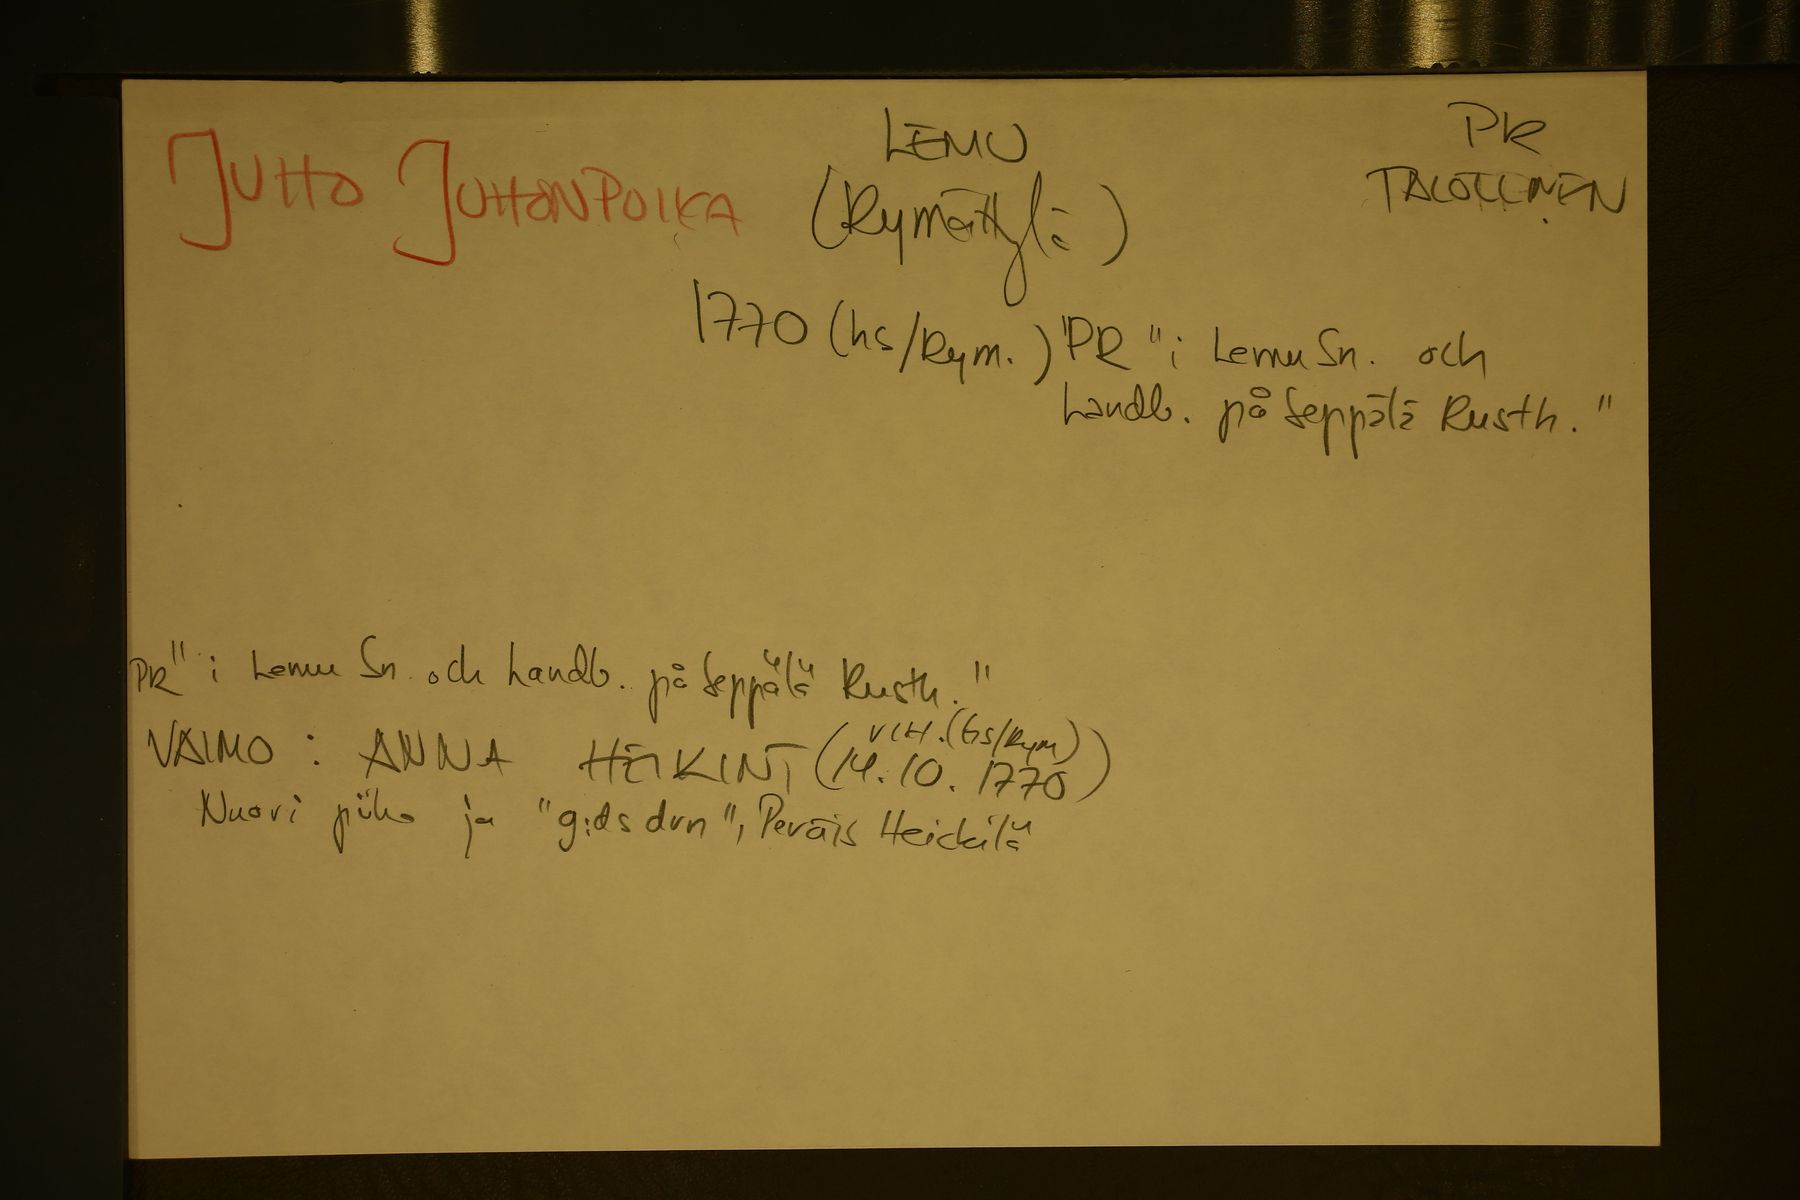 JUTTO JUTTONPOIKA
LEMU
(Rymättylä)
PR
TALOLLINEN
1770 (hs/Rym.) "PR" i Lemu Sn. och
Landb. på Seppälä Rusth."
PR" i Lemu Sn. och Landb. på Seppälä Rusth."
VAIMO: ANNA HEIKINT (VIH. (hs/Rym) 14.10.1770)
Nuori piika ja "g:ds drn", Peräis Heickilä